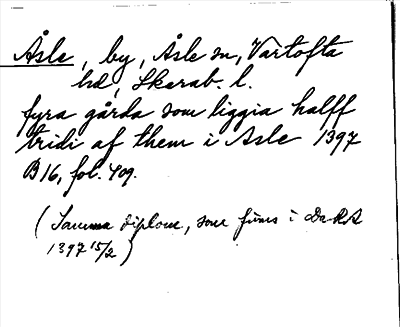 Åsle, by, Åsle sn, Vartofta
hd, Skarab. l.
fyra gårda som liggia halff
tridi af them i Asle 1397
B16, fol. 409.
(Samma diplom, som finns i Da RA
1397 15/2)